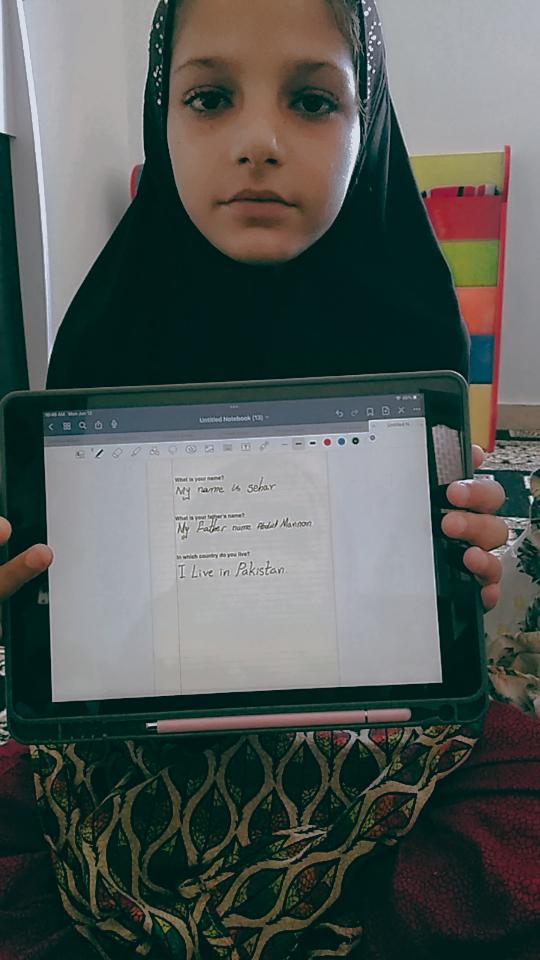 10:46 AM Mon Jun 12
Untitled Notebook (13)
Untitled N
What is your name?
My name is sehar
What is your father's name?
My Father name Abdul Mannan
In which country do you live?
I Live in Pakistan.